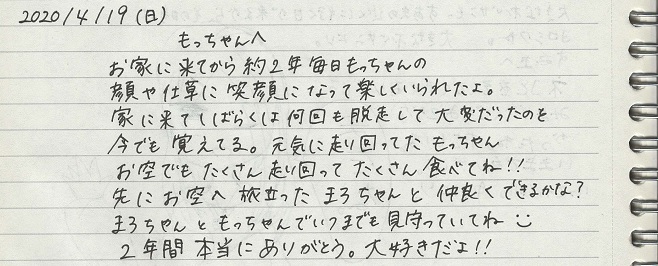 2020/4/19(日)
もっちゃんへ
お家に来てから約2年毎日もっちゃんの
顔や仕草に笑顔になって楽しくいられたよ。
家に来てしばらくは何回も脱走して大変だったのを
今でも覚えてる。元気に走り回ってたもっちゃん
お空でもたくさん走り回ってたくさん食べてね!!
先にお空へ旅立ったまろちゃんと仲良くできるかな?
まろちゃんともっちゃんでいつまでも見守っていてね
2年間本当にありがとう。大好きだよ!!